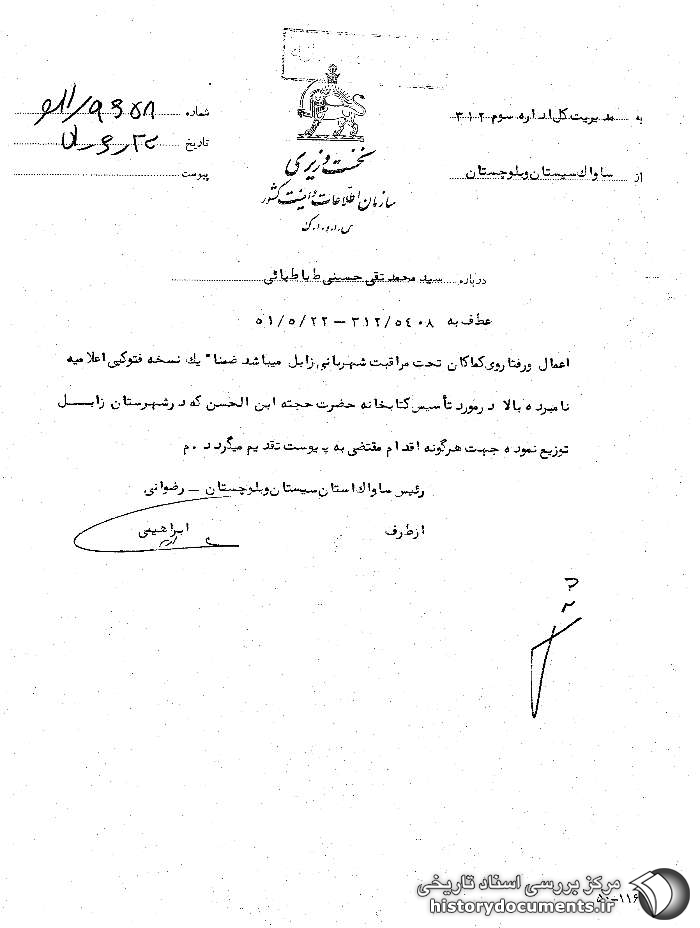 به مدیریت کل اداره سوم ۳۱۲
از ساواک سیستان و بلوچستان
شماره
تاریخ
پیوست
نخست وزیری
سازمان اطلاعات و امنیت کشور
س.ا.و.ا.ک
درباره سید محمد تقی حسینی طباطبائی
عطف به ۳۱۲/۵۴۰۸ – ۵۱/۵/۲۲
اعمال و رفتار وی کماکان تحت مراقبت شهربانی زابل میباشد ضمنا" یک نسخه فتوکپی اعلامیه
نامبرده بالا در مورد تأسیس کتابخانه حضرت حجته ابن الحسن که در شهرستان زابل
توزیع نموده جهت هرگونه اقدام مقتضی به پیوست تقدیم میگردد. م
رئیس ساواک استان سیستان و بلوچستان – رضوانی
از طرف ابراهیمی
مرکز بررسی اسناد تاریخی
historydocuments.ir